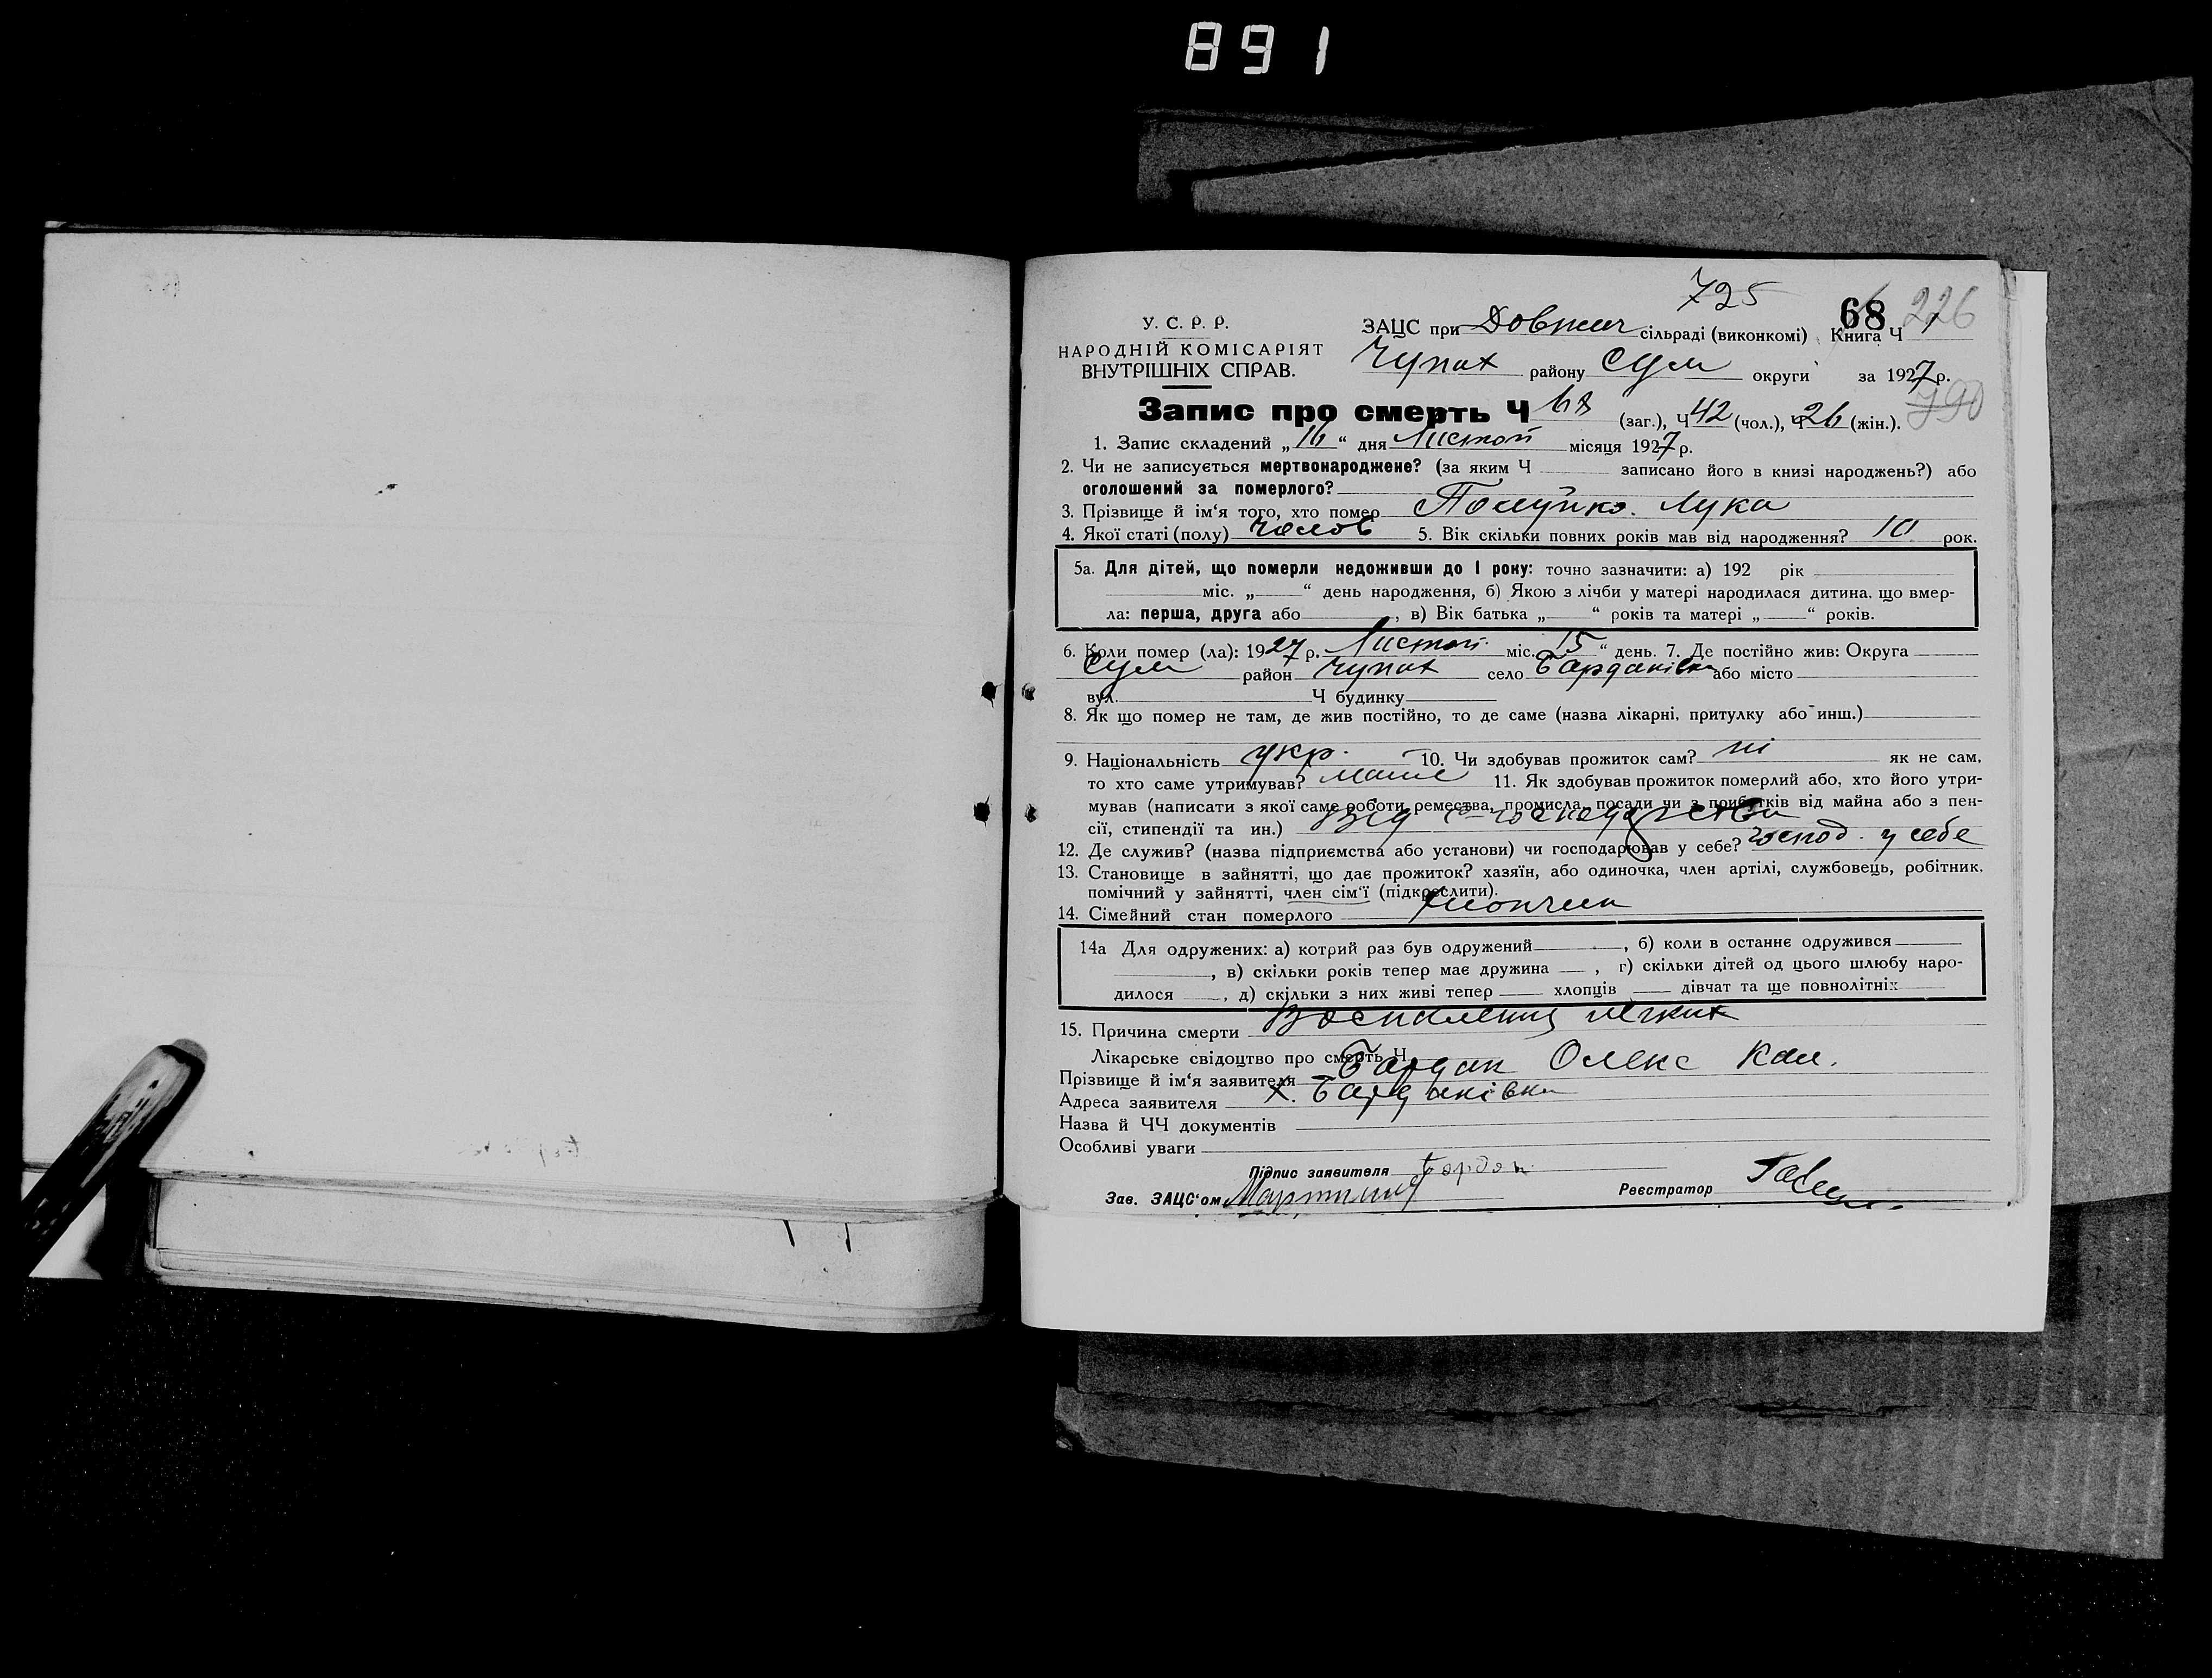 891
725
У. С. Р. Р.
НАРОДНІЙ КОМІСАРІЯТ
ВНУТРІШНІХ СПРАВ.
ЗАЦС при Довжич сільраді (виконкомі) Книга Ч
68 226
Чупах району Сум округи за 1927 р.
790
Запис про смерть Ч 68 (заг.), Ч 42 (чол.), Ч 26 (жін.).
1. Запис складений „16“ дня Листоп місяця 1927 р.
2. Чи не записується мертвонароджене? (за яким Ч записано його в книзі народжень?) або
оголошений за померлого?
3. Прізвище й ім‘я того, хто помер Лука
4. Якої статі (полу) чолов 5. Вік скільки повних років мав від народження? 10 рок.
5а. Для дітей, що померли недоживши до 1 року: точно зазначити: а) 192 рік
міс. „ “ день народження, б) Якою з лічби у матері народилася дитина, що вмер-
ла: перша, друга або , в) Вік батька „ “ років та матері „ “ років.
6. Коли помер (ла): 1927 р. Листоп. міс. „15“ день. 7. Де постійно жив: Округа
Сум район Чупах село Бардаківка або місто
вул. Ч будинку
8. Як що помер не там, де жив постійно, то де саме (назва лікарні, притулку або инш.)
9. Національність укр. 10. Чи здобував прожиток сам? ні як не сам,
то хто саме утримував? 11. Як здобував прожиток померлий або, хто його утри-
мував (написати з якої саме роботи, ремества, промисла, посади чи з прибутків від майна або з пен-
сії, стипендії та ин.) Від с-господарства
12. Де служив? (назва підприємства або установи) чи господарював у себе? господ. у себе
13. Становище в зайнятті, що дає прожиток? хазяїн, або одиночка, член артілі, службовець, робітник,
помічний у зайнятті, член сім‘ї (підкреслити).
14. Сімейний стан померлого хлопчик
14а Для одружених: а) котрий раз був одружений , б) коли в останнє одружився
, в) скільки років тепер має дружина , г) скільки дітей од цього шлюбу наро-
дилося , д) скільки з них живі тепер хлопців дівчат та ще повнолітніх
15. Причина смерти Воспаления легких
Лікарське свідоцтво про смерть Ч
Прізвище й ім‘я заявителя Бардак Олекс Кал.
Адреса заявителя х. Бардаківка
Назва й ЧЧ документів
Особливі уваги
Підпис заявителя Бардак
Зав. ЗАЦС‘ом Реєстратор